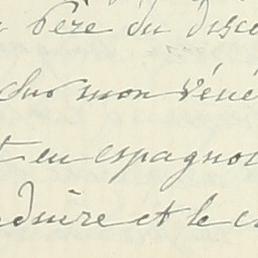 père du disco
sur mon véné
t en espagnol
duire et le c